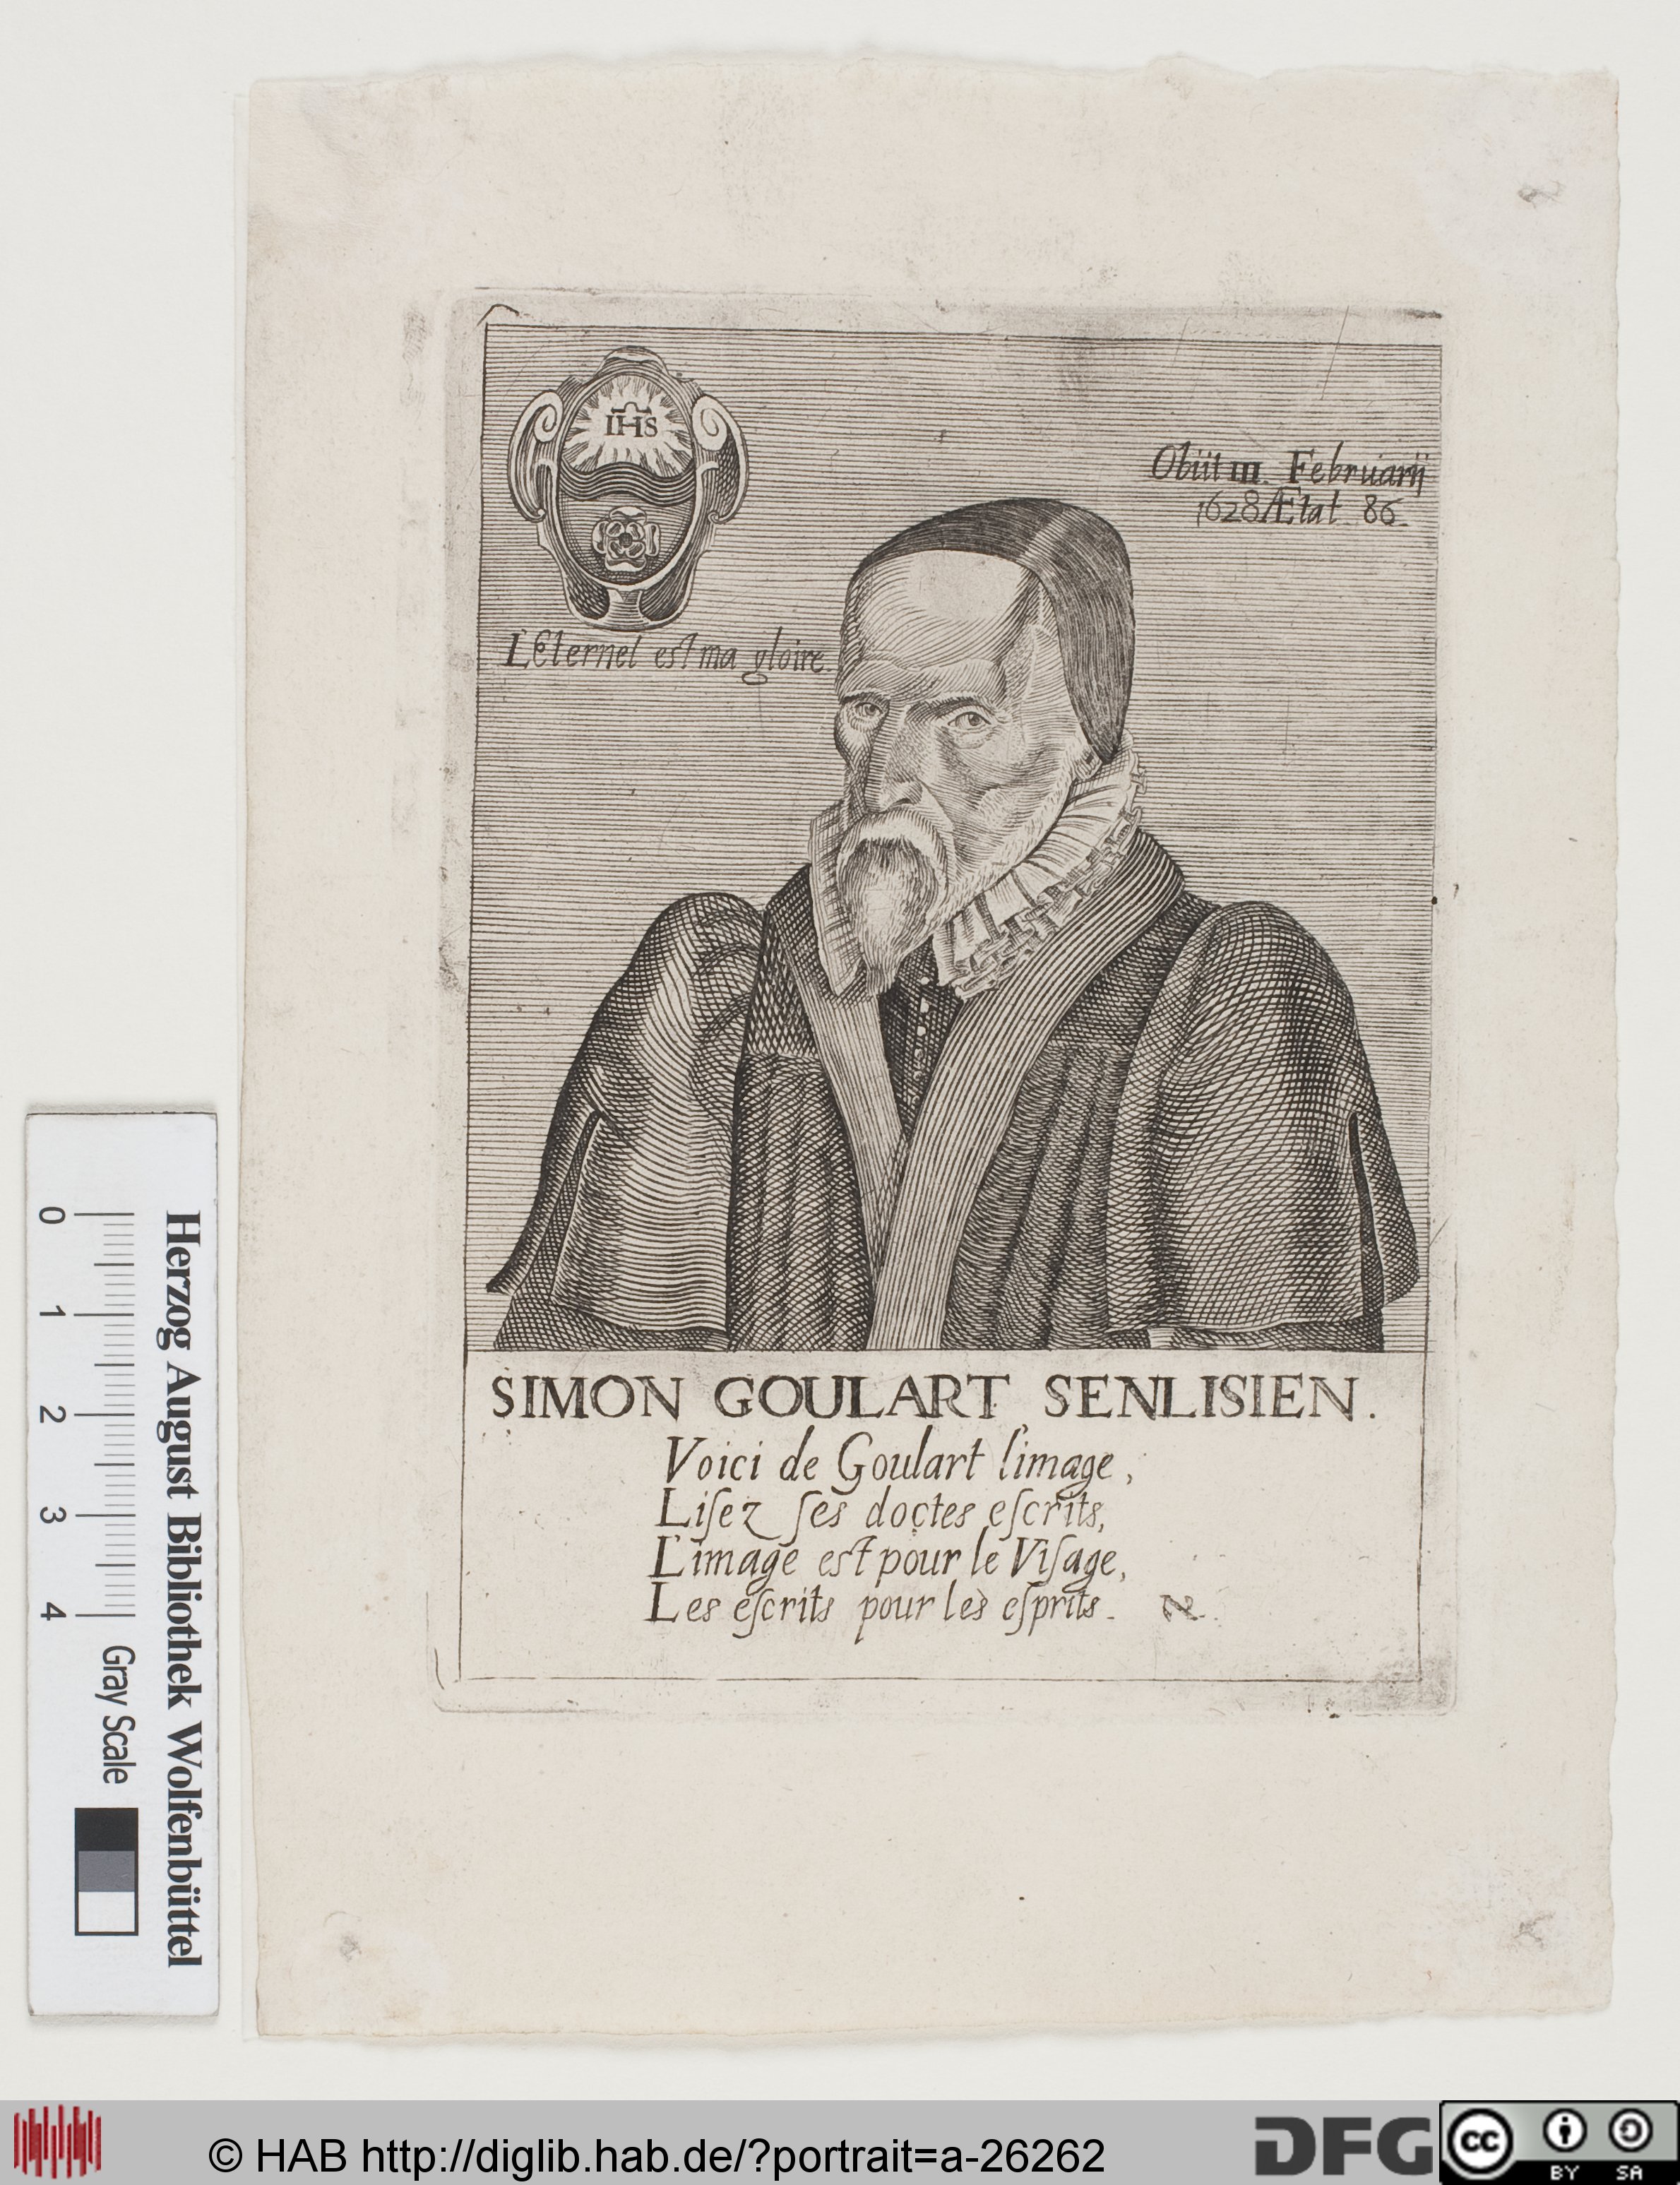 IHS
Obiit III. Februarij
1628 Ætat 86.
L'Eternel est ma gloire.
SIMON GOULART SENLISIEN.
Voici de Goulart l'image,
Liſez ſes doctes eſcrits,
L'image est pour le Viſage,
Les eſcrits pour les eſprits.
Herzog August Bibliothek Wolfenbüttel
0 1 2 3 4 Gray Scale
© HAB http://diglib.hab.de/?portrait=a-26262
DFG
cc BY SA